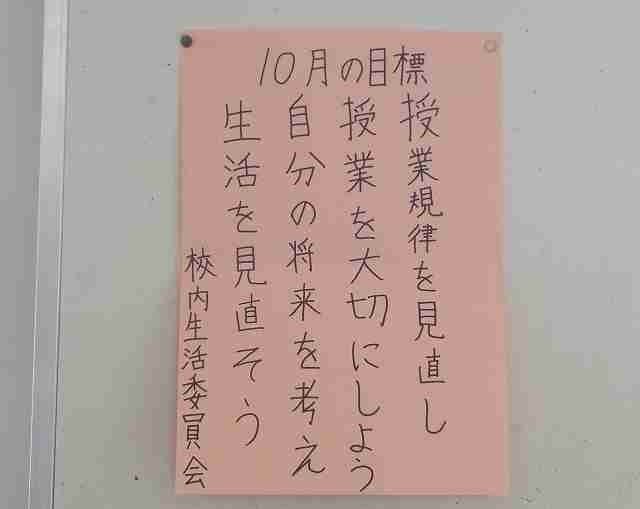 10月の目標
授業規律を見直し
授業を大切にしよう
自分の将来を考え
生活を見直そう
校内生活委員会